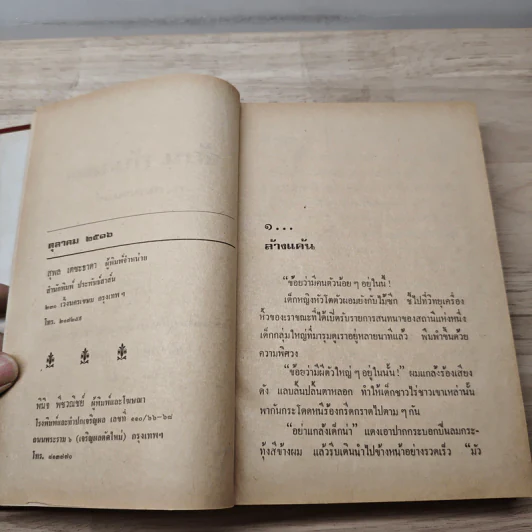 ตุลาคม ๒๕๑๖
สุพล เตชะธาดา ผู้พิมพ์จำหน่าย
สำนักพิมพ์ ประพันธ์สาส์น
กรุงเทพฯ
โทร.
พินิจ ผู้พิมพ์และโฆษณา
โรงพิมพ์และทำปกเจริญผล เลขที่ ๑๑๐/๖๖-๖๘
ถนนพระราม ๖ (เจริญผลตัดใหม่) กรุงเทพฯ
โทร.
๑...
ล้างแค้น
"ข้อยว่ามีคนตัวน้อย ๆ อยู่ในนั้น!"
เด็กหญิงหัวโตตัวผอมยังกับไม้ซีก ชี้ไปที่วิทยุเครื่อง
หิ้วของเราขณะที่ได้เปิดรับรายการสนทนาของสถานีแห่งหนึ่ง
เด็กกลุ่มใหญ่ที่มารุมดูเราอยู่หลายนาทีแล้ว พึมพำขึ้นด้วย
ความพิศวง
"ข้อยว่ามีผีตัวใหญ่ ๆ อยู่ในนั้น!" ผมแกล้งร้องเสียง
ดัง แลบลิ้นปลิ้นตาหลอก ทำให้เด็กชาวไร่ชาวเขาเหล่านั้น
พากันกระโดดหนีร้องกรีดกราดไปตาม ๆ กัน
"อย่าแกล้งเด็กน่า" แดงเอาปากกระบอกปืนลมกระ-
ทุ้งสีข้างผม แล้วรีบเดินนำไปข้างหน้าอย่างรวดเร็ว "มัว